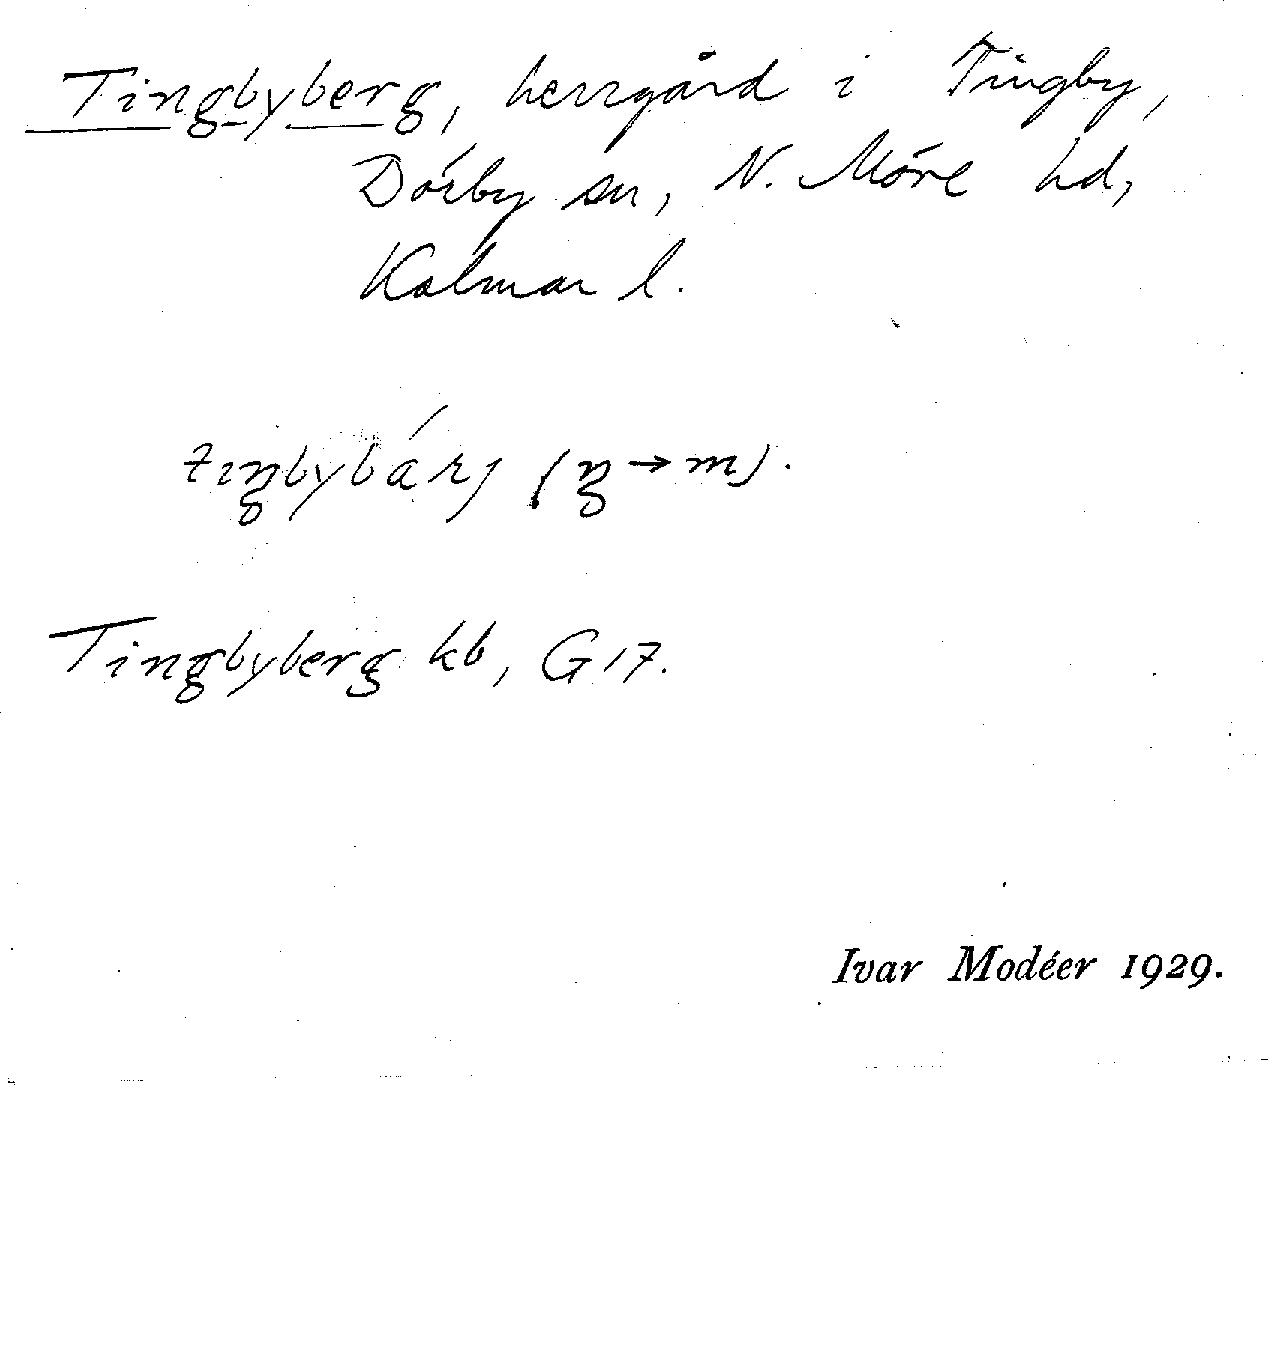 Tingbyberg, herrgård i Tingby,
Dörby sn, N. Möre hd,
Kalmar l.
tıŋbybárj (ŋ→m).
Tingbyberg kb, G 17.
Ivar Modéer 1929.